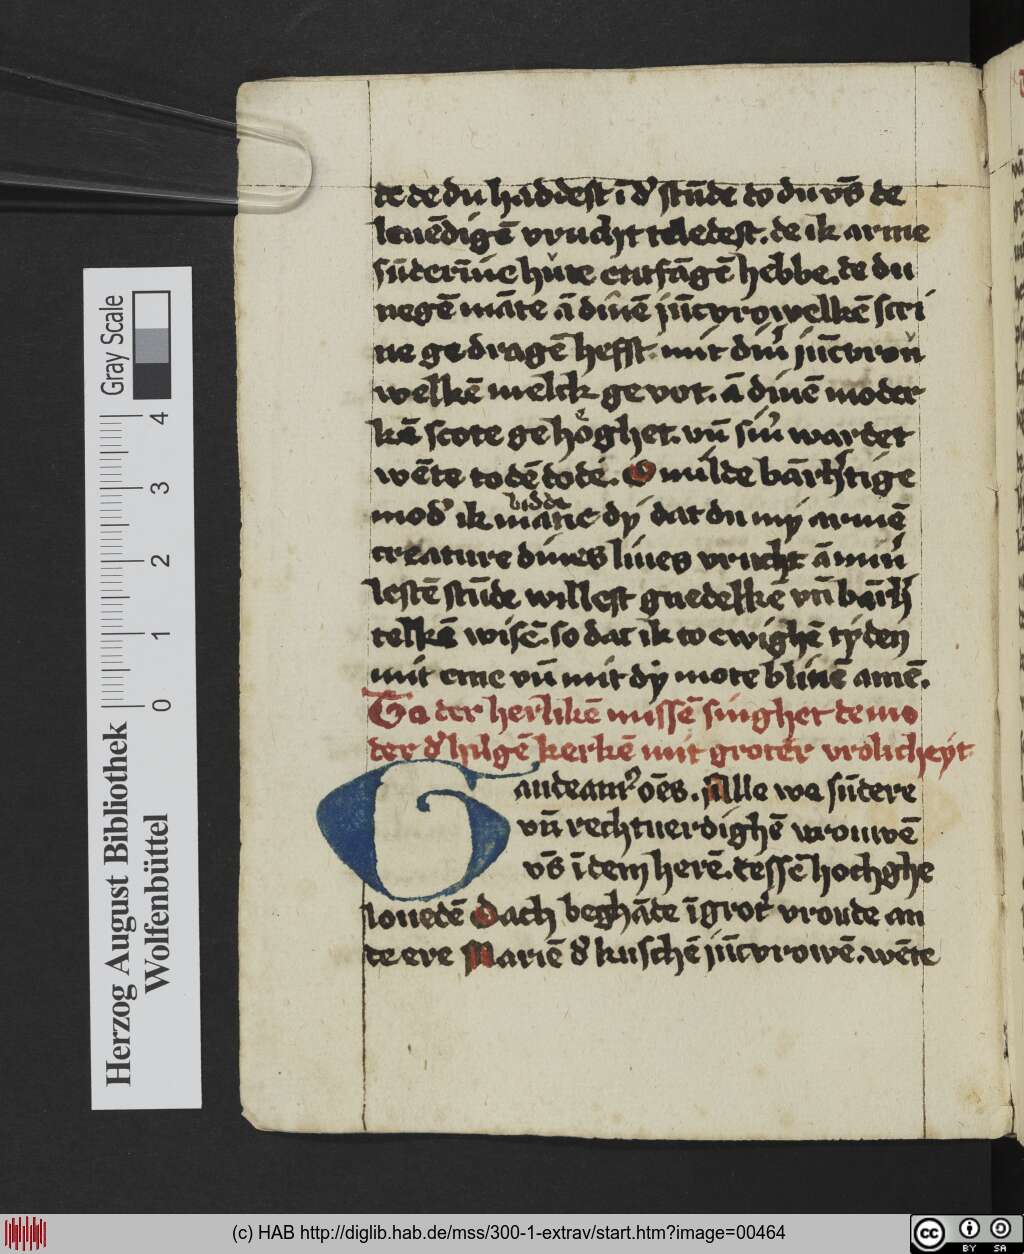 te de du haddest ī dͬ stūde do du vs̄ de
leuēdigē vrucht teledest. de ik arme
sūderīne hute entfāgē hebbe. de du
negē māte ā dinē jūcvrowelkē scri
ne ge dragē hefst. mit dinͬ jūcvrou
welkē melck ge vot. ā dinē moder
kē scote ge hoͤghet. vn̄ sinͬ wardet
wēte to dē dode. O milde bārhͬtige
modͬ ik bidde dy dat du my armē
creature dines liues vrucht ā minͬ
lestē stūde willest gnedelkē vn̄ bārh
telkē wisē. so dat ik to ewighē tyden
mit eme vn̄ mit dy mote bliuē amē.
To der herlikē missē singhet de mo
der dͬ hilgē kerkē mit groter vrolicheyt
Gaudeamͬ oēs. Alle we sūdere
vn̄ rechtuerdighē vrouwē
vs̄ ī dem herē. dessē hochghe
louedē dach beghāde ī grotͬ vroude an
te ere Mariē dͬ kuschē jūcvrowē. wēte
Herzog August Bibliothek
Wolfenbüttel
Gray Scale
0 1 2 3 4
(c) HAB http://diglib.hab.de/mss/300-1-extrav/start.htm?image=00464
cc BY SA